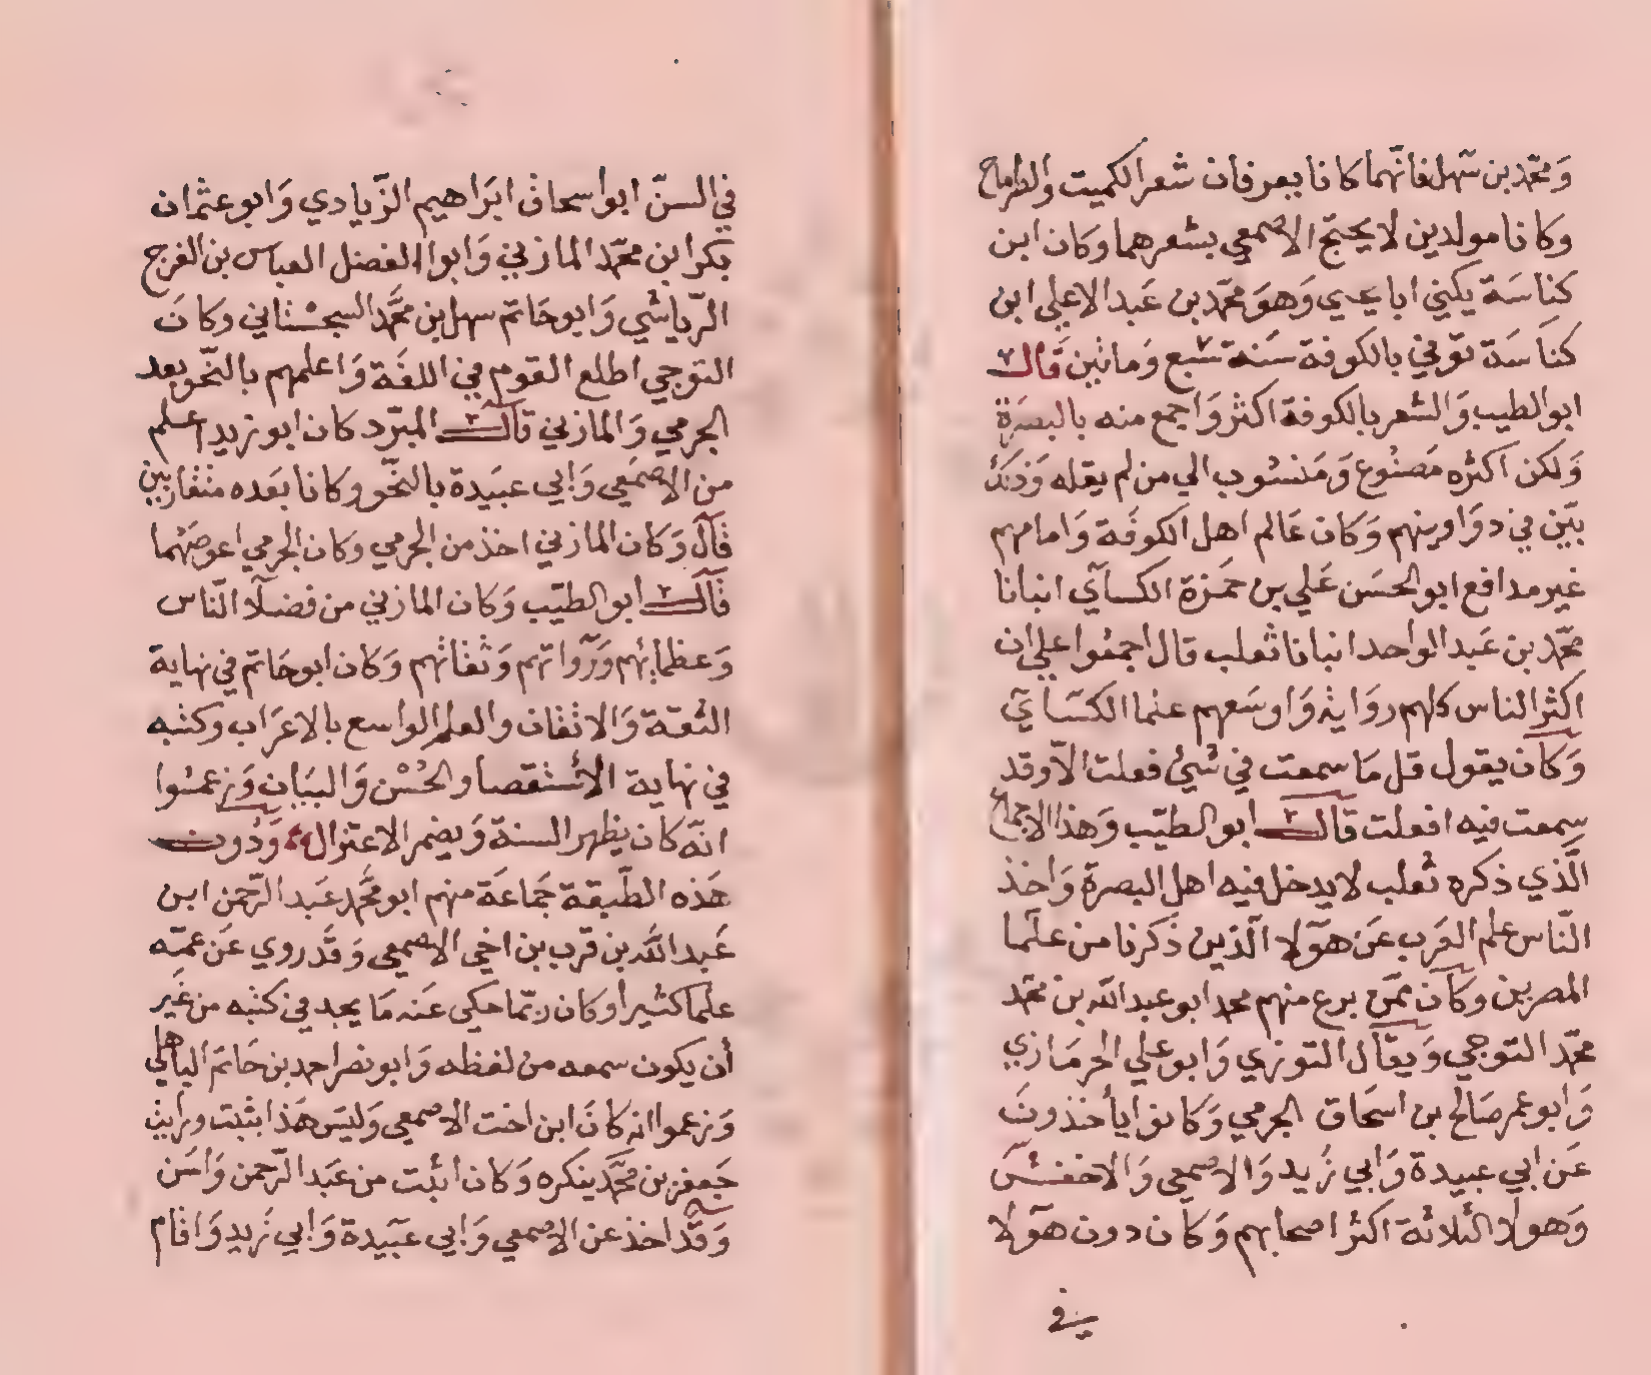 وَمحمّد بن سَهل فانّهما كانا يعرفان شعر الكميت والطرماح
وكانا مولدين لا يحتج الاصمعي بشعرهما وكان ابن
كناسَة يكني ابا يحيي وَهوَ محمّد بن عَبد الاعلي ابن
كنَاسَة توفي بالكوفة سَنة سَبع وَماتين قَال
ابو الطيب وَالشعر بالكوفة اكثر وَاجمع منه بالبصَرة
وَلكن اكثره مَصنُوع وَمَنسُوب الي من لم يقله وَذلكَ
بيّن في دوَاوينهم وَكان عَالم اهل الكوفَة وَامامهم
غير مدافع ابو الحسَن عَلي بن حمَزة الكسآي انبانا
محمّد بن عَبد الواحد انبانا ثعلب قال اجمعُوا علي ان
اكثر الناس كلهم روَاية وَاوسَعهم علما الكسَاآي
وَكان يقول قل مَا سمعت في شيئ فعلت الّا وقد
سمعت فيه افعلت قال ابو الطيّب وَهذا الاجماع
الّذي ذكره ثعلب لا يدخل فيه اهل البصرة وَاخذ
النّاس علم العَرب عَن هوَلا الّذين ذَكرنا من علمآ
المصرين وَكان ممّن برع منهم محمد ابو عبد اللّه بن محمّد
محمّد التوجي وَيقال التوزي وَابو علي الحرمَازي
وَابو عمر صَالح بن اسحَاق الجرمي وَكانوا يأخذونَ
عَن ابي عبيدة وَابي زَيد وَالاصمعي وَالاخفشَ
وَهولا الثلاثة اكثر اصحابهم وَكان دون هوَلا
في
في السنّ ابو اسحاق ابرَاهيم الزّيادي وَابو عثمان
بكر ابن محمّد المازني وَابو الفضل العباس بن الفرج
الرّياشي وَابو حَاتم سهل بن محمَّد السجسْتاني وكانَ
التوجي اطلع القوم في اللغَة وَاعلمهم بالنّحو بعد
الجرمي وَالمازني قال المبرّد كان ابو زيد اعلم
من الاصمَعي وَابي عبَيدة بالنحّو وكانا بعَده متقاربين
قال وَكان المازني اخذ من الجرمي وكان الجرمي اعوصَهما
قال ابو الطيّب وَكان المازني من فضلآ النّاس
وَعظمائهم وَروَاتهم وَثقاتهم وَكان ابو حَاتم في نهاية
الثقة وَالاتقان والعلم الواسع بالاعرَاب وكتبه
في نهاية الأستقصا والحُسْن وَالبيَان وَزعمُوا
انّه كان يظهر السنة وَيضمر الاعتزال وَدُون
هَذه الطّبقة جَماعَة منهم ابو محمَّد عَبد الرّحمن ابن
عَبد اللَّه بن قرب بن اخي الاصمعي وَقَد روي عَن عمّه
علما كثيرا وكان ربّما حكى عَنه مَا يجد في كتبه من غَير
أن يكون سمعه من لفظه وَابو نصر احمد بن حَاتم الباهلي
وَزعموا انه كانَ ابن اخت الاصمعي وَليسَ هَذا بثبت ورايت
جَعفر بن محمَّد ينكره وَكان اثبت من عَبد الرّحمن وَاسَن
وَقَد اخذ عن الاصمعي وَابي عبَيدة وَابي زَيد وَاقام